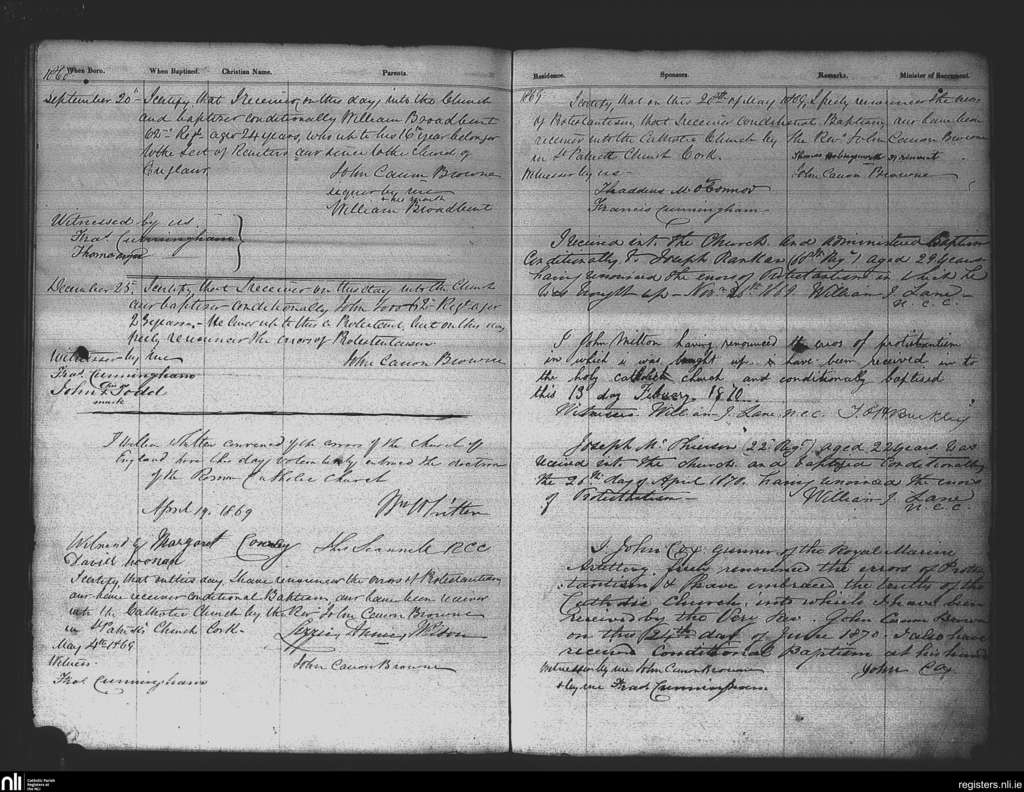 1868 When Born. When Baptized. Christian Name. Parents.
September 20th I certify that I received on this day into the Church
and baptised conditionally William Broadbent
62nd Regt aged 24 years, who up to his 16th year belonged
to the Sect of and since to the Church of
England.
John Canon Browne
signed by me
William Broadbent
Witnessed by us
Fras. Cunningham
Thomas
December 25th I certify that I received on this day into the Church
and baptised conditionally John 62nd Regt aged
23 years. He lived up to this a Protestant, but on this day
freely renounced the errors of Protestantism
Witnessed by me John Canon Browne
Fras. Cunningham
John Todd
mark
I William convinced of the errors of the Church of
England have this day voluntarily entered the
of the Roman Catholic Church
April 19. 1869 Wm
Witnessed by Margaret
David Noonan RCC
I certify that on this day I have renounced the errors of Protestantism
and have received conditional Baptism, and have been received
into the Catholic Church by the Rev John Canon Browne
in St Patrick's Church Cork.
May 4th 1869
Witness. John Canon Browne
Fras Cunningham
1869 Residence. Sponsors. Remarks. Minister of Sacrament.
I certify, that on this 20th of May 1869, I freely renounced the errors
of Protestantism, that I received conditional Baptism, and have been
received into the Catholic Church by the Revd John Canon Browne
in St Patrick's Church Cork.
Witnessed by us John Canon Browne
Thaddeus McO'Connor
Francis Cunningham
I received into the Church and administered Baptism
Conditionally to Joseph aged 29 years
having renounced the errors of Protestantism in which he
was brought up - Novr 1869 William J. Lane
R. C. C.
I John Milton having renounced the errors of protistantism
in which i was brought up, & have been received in to
the holy catholick church and conditionally baptised
this 13 day 1870
Witnesses William J Lane R.C.C.
Joseph (22nd Regt) aged 22 years was
received into the church and baptized conditionally
the 26th day of April 1870 having renounced the errors
of Protestantism - William J. Lane
R. C. C.
I John Cox gunner of the Royal Marine
Artillery freely renounced the errors of Protes
tantism & have embraced the truths of the
Catholic Church, into which I have been
received by the Very Rev. John Canon Browne
on this 24th day of June 1870 - I also have
received Conditional Baptism at his hands
Witnessed by me John Canon Browne John Cox
& by me Fras Cunningham
nli Catholic Parish Registers at the NLI
registers.nli.ie